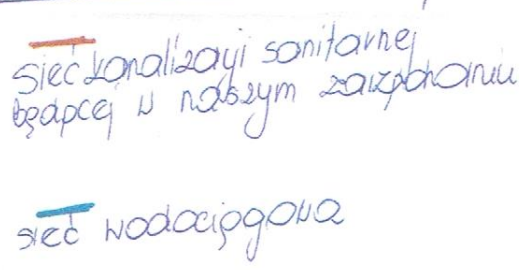 sieć kanalizacyi sanitarnej
będącej w naszym zarządzaniu
sieć wodociągowa